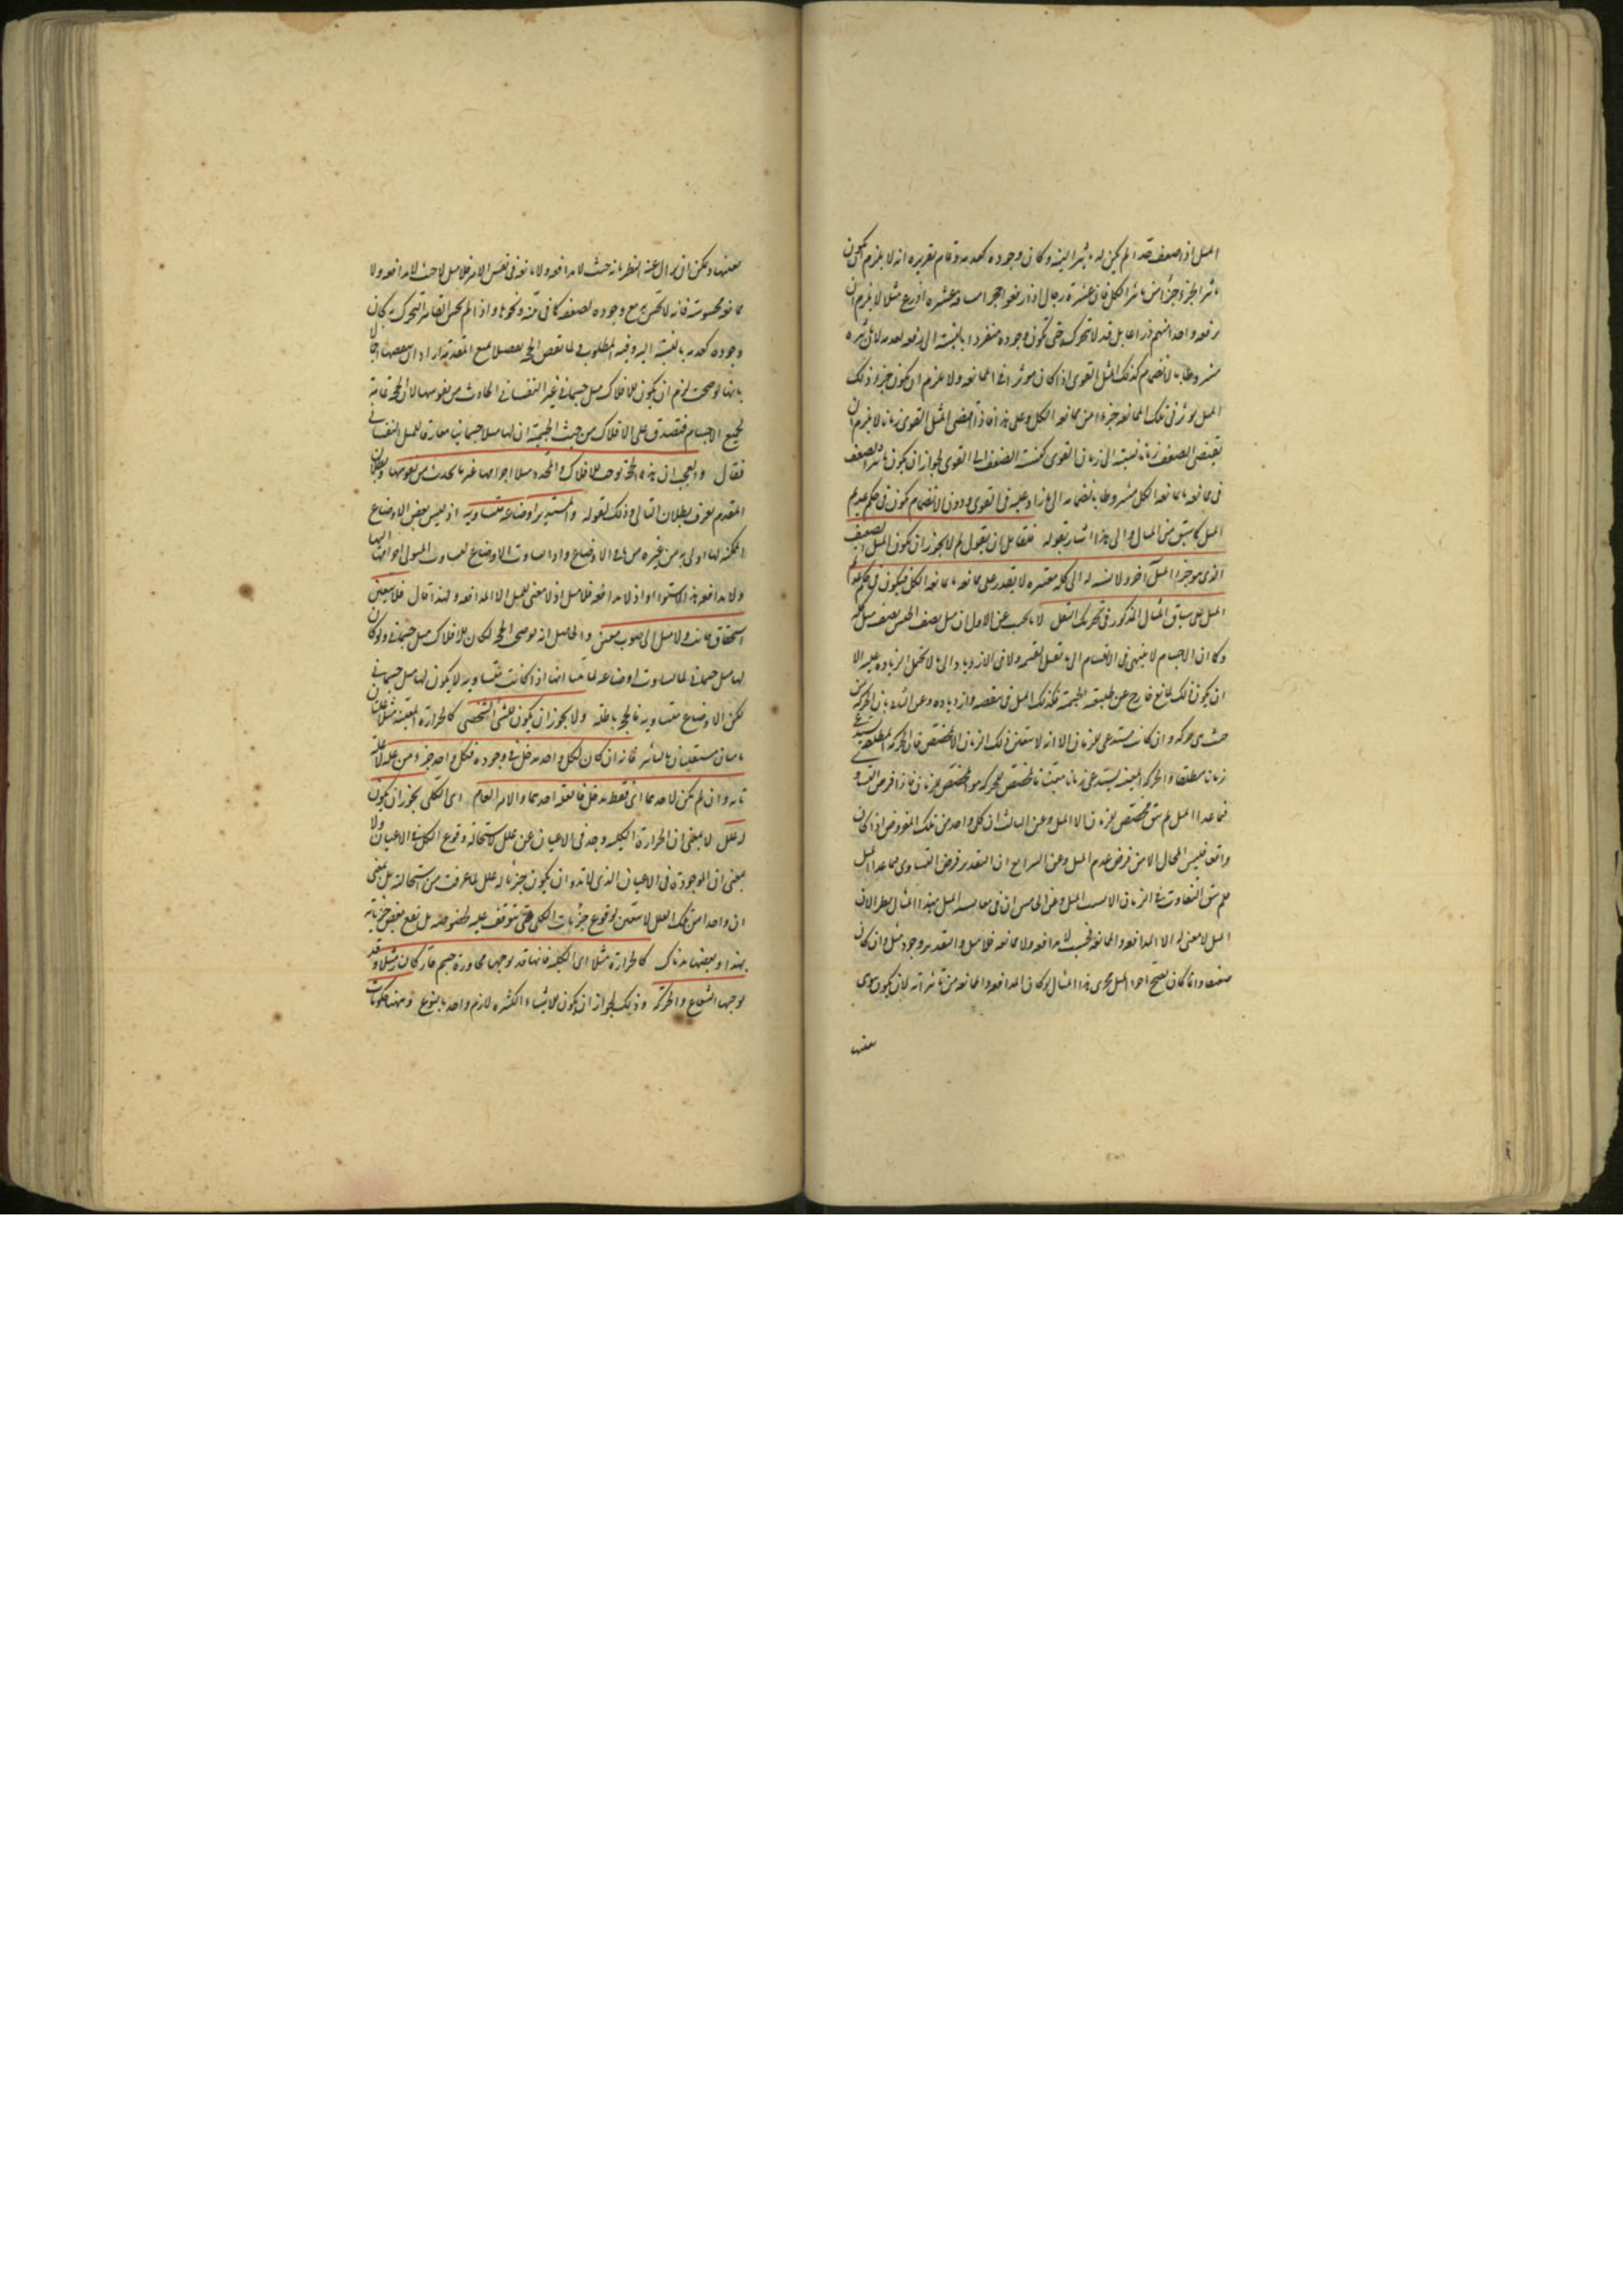 الميل اذا ضعف قد الم يكن له تاثير البتة وكان وجوده كعدمه وتمام تقريره انه لا يلزم ان يكون
تاثير الجزء جزءا من تاثير الكل فان عشرة رجال اذا رفعوا حجرا مسافة عشرة اذرع مثلا لا يلزم ان
رفعه واحد منهم ذراعا بل قد لا تحرك حتى تكون وجوده منفردا بالنسبة الى رفعه كعدمه لان تاثيره
مشروط بالانضمام كذلك الميل القوى اذا كان موثرا في الممانعة ولا يلزم ان يكون جزء ذلك
الميل يوثر فى تلك الممانعة جزءا من ممانعة الكل وعلى هذا فاذا اقتضى الميل القوى زمانا لا يلزم ان
يقتضى الضعيف زمانا نسبته الى زمان القوى كنسبة الضعيف الى القوى لجواز ان يكون تاثير الضعيف
فى ممانعة ما ممانعة الكل مشروطا بانضمامه الى ما زاد عليه فى القوى وبدون الانضمام يكون فى حكم عديم
الميل كما سبق من المثال والى هذا اشار بقوله فلقايل ان يقول لم لا يجوز ان يكون الميل الضعيف
الذى هو جزء الميل آخر ولا نسبة له الى كله معتبرة لا يقدر على ممانعة ما ممانعة الكل فيكون فى حكم عديم
الميل على سياق المثال المذكور فى تحريك الثقل لا يجب عن الاول ان ميل نصف الجسم نصف ميل كله
وكما ان الاجسام لا ينتهى فى الانقسام الى ما لا تقبل القسمة ولا فى الازدياد الى ما لا تحتمل الزيادة عليه الا
ان يكون ذلك لمانع خارج عن طبيعة الجسمية فكذلك الميل فى تنقصه وازدياده وعن الثانى بان الحركة من
حيث هى حركة وان كانت تستدعى زمانا الا انه لا يتعين ذلك الزمان الا لمخصص فان الحركة المطلقة تستدعى
زمانا مطلقا والحركة المعينة تستدعى زمانا معينا فالمخصص للحركة هو المخصص للزمان فاذا فرض التساوى
فيما عدا الميل لم يبق مخصص للزمان الا الميل وعن الثالث ان كل واحد من تلك الفروض اذا كان
واقعا فليس المحال الا من فرض عدم الميل وعن الرابع ان التقدير فرض التساوى فيما عدا الميل
فلم يبق التفاوت فى الزمان الا بسبب الميل وعن الخامس ان فى مقايسة الميل بهذا المثال نظر لان
الميل لا معنى له الا المدافعة والممانعة فحيث لا مدافعة ولا ممانعة فلا ميل والتقدير وجود ميل وان كان
ضعيفا وانما كان يصح اجراء الميل مجرى هذا المثال لو كان المدافعة والممانعة من تاثيراته لان يكون هى
عينها
عينها ويمكن ان يزال عنه النظر بانه حيث لا مدافعة ولا ممانعة فى نفس الامر فلا ميل لا حيث لا مدافعة ولا
ممانعة محسوسة فانه لا يحس مع وجوده لضعفه كما فى تبنة ونحوها واذا لم يحس القاسر المتحرك به كان
وجوده كعدمه بالنسبة اليه وفيه المطلوب فى لما نقض الحجة تفصيلا بمنع المقدمة اراد ان ينقضها اجمالا
بانها لو صحت لزم ان يكون للافلاك ميل جسمانى غير النفسانى الحادث من نفوسها لان الحجة قائمة
لجميع الاجسام فتصدق على الافلاك من حيث الجسمية ان لها ميلا جسمانيا مغايرا للميل النفسانى
فقال والعجب ان هذه الحجة توجب للافلاك والمحدد ميلا اجراميا غير ما يحدث من نفوسها وبطلان
المقدم يعرف ببطلان التالى وذلك لقوله والمستدير اوضاعه متساوية اذ ليس بعض الاوضاع
الممكنة لها اولى به من غيره من باقى الاوضاع واذا تساوت الاوضاع تساوت الميول اجراميا اليها
ولا مدافعة مع الاستواء واذ لا مدافعة فلا ميل اذ لا معنى للميل الا المدافعة ولهذا قال فلا يتعين
استحقاق جانب ولا ميل الى صوب معين والحاصل انه لو صح الحجة لكان للافلاك ميل جسمانى ولو كان
لها ميل جسمانى لما تساوت اوضاعه لما بينا انها اذا كانت متساوية لا يكون لها ميل جسمانى
لكن الاوضاع متساوية فالحجة باطلة ولا يجوز ان يكون للشى الشخصى كالحرارة المعينة مثلا علتان
تامتان مستقلتان بالتاثير فانه ان كان لكل واحد مدخل فى وجوده فكل واحد جزء من علة لا علة
تامة وان لم يكن لاحدهما اى فقط مدخل فالعلة احدهما والامر العام اى الكلى يجوز ان يكون
له علل لا بمعنى ان الحرارة الكلية وجد فى الاعيان عن علل لاستحالة وقوع الكلى فى الاعيان ولا
بمعنى ان الموجودة فى الاعيان الذى لا بد وان يكون جزئيا له علل لما عرفت من استحالته بل بمعنى
ان واحدا من تلك العلل لا يتعين لوقوع جزئيات الكلى حتى يتوقف عليه بخصوصه بل يقع بعض جزئياته
بهذا وبعضها بذاك كالحرارة مثلا اى الكلية فانها قد يوجبها مجاورة جسم حار كالنار مثلا وقد
يوجبها الشعاع والحركة وذلك لجواز ان يكون للاشياء الكثيرة لازم واحد بالنوع وههنا حكومات